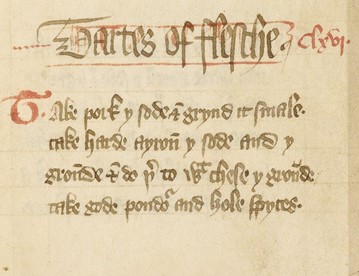 Tartes of flesche. clxvi.
Take pork y sode & grynd it smale.
take harde ayroun y sode and y
grounde & do þͭ to wͭ chese y grounde
take gode poudoʳ and hole spyces.